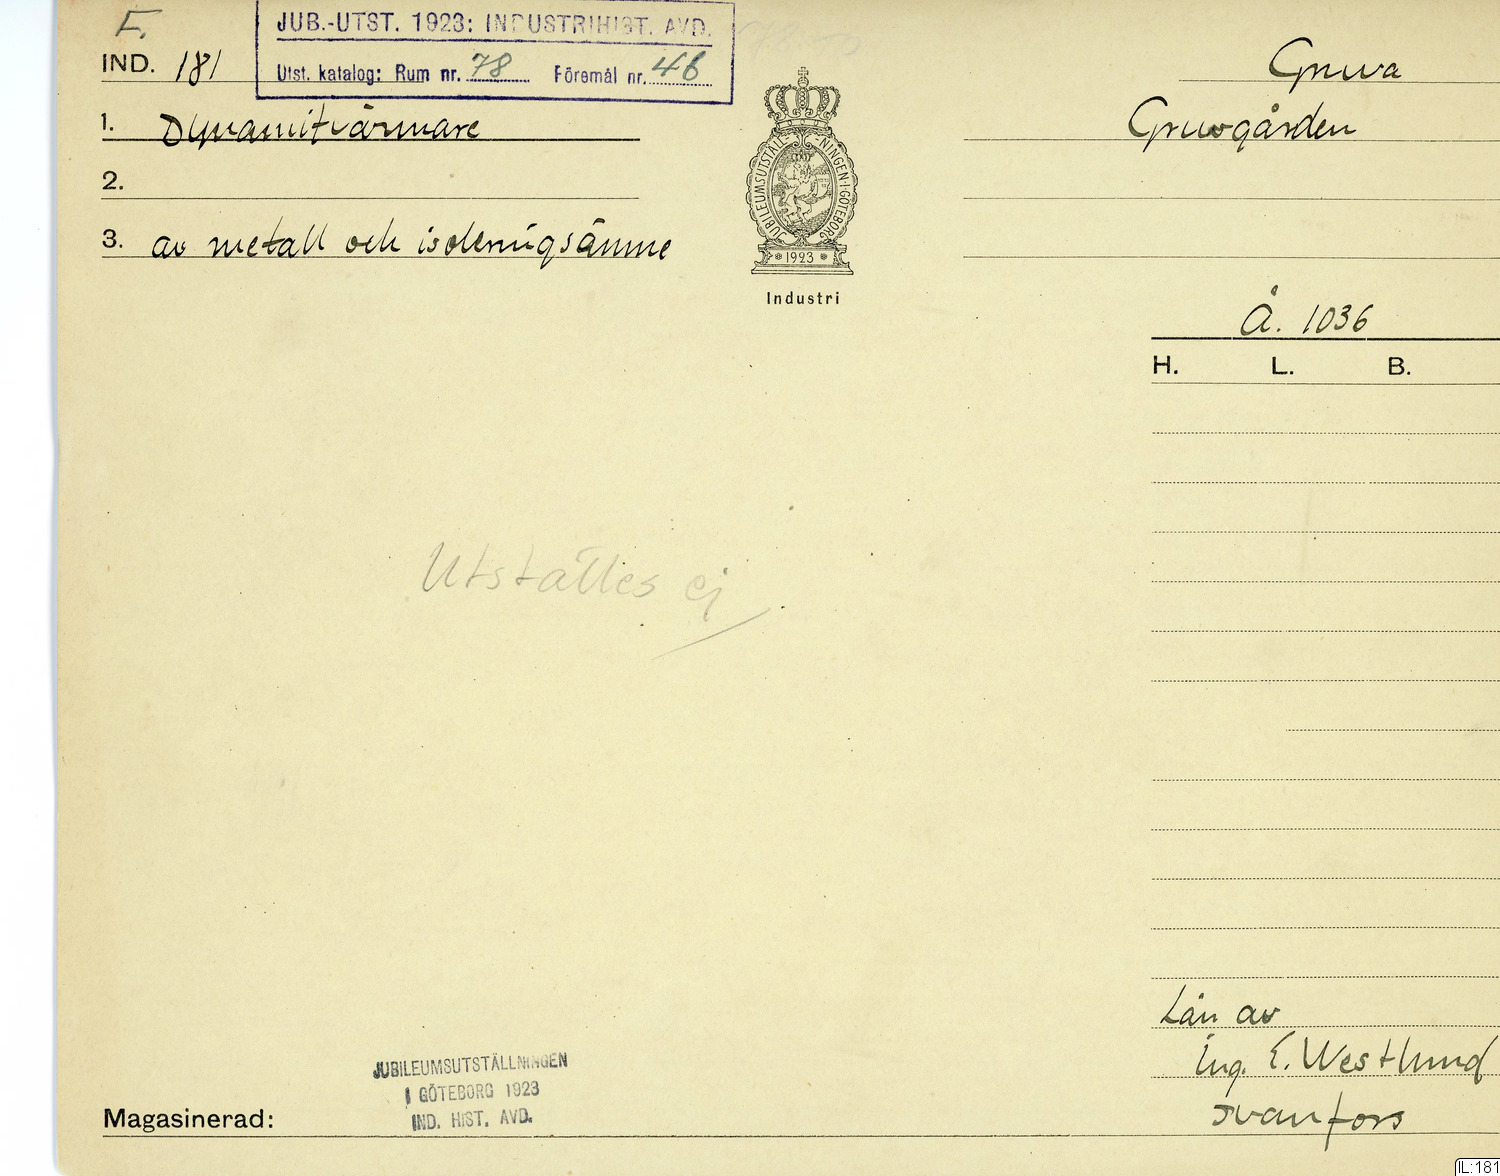 F.
JUB.-UTST. 1923: INDUSTRIHIST. AVD.
IND. 181
Utst. katalog: Rum nr. 78 Föremål nr. 46
Gruva
1. Dynamitvärmare
Gruvgården
2.
3. av metall och isoleringsämne
JUBILEUMSUTSTÄLLNINGEN·I·GÖTEBORG
1923
Industri
Å. 1036
H. L. B.
Utställes ej
Lån av
ing. E. Westlund
Svanfors
JUBILEUMSUTSTÄLLNINGEN
I GÖTEBORG 1923
IND. HIST. AVD.
Magasinerad:
IL:181